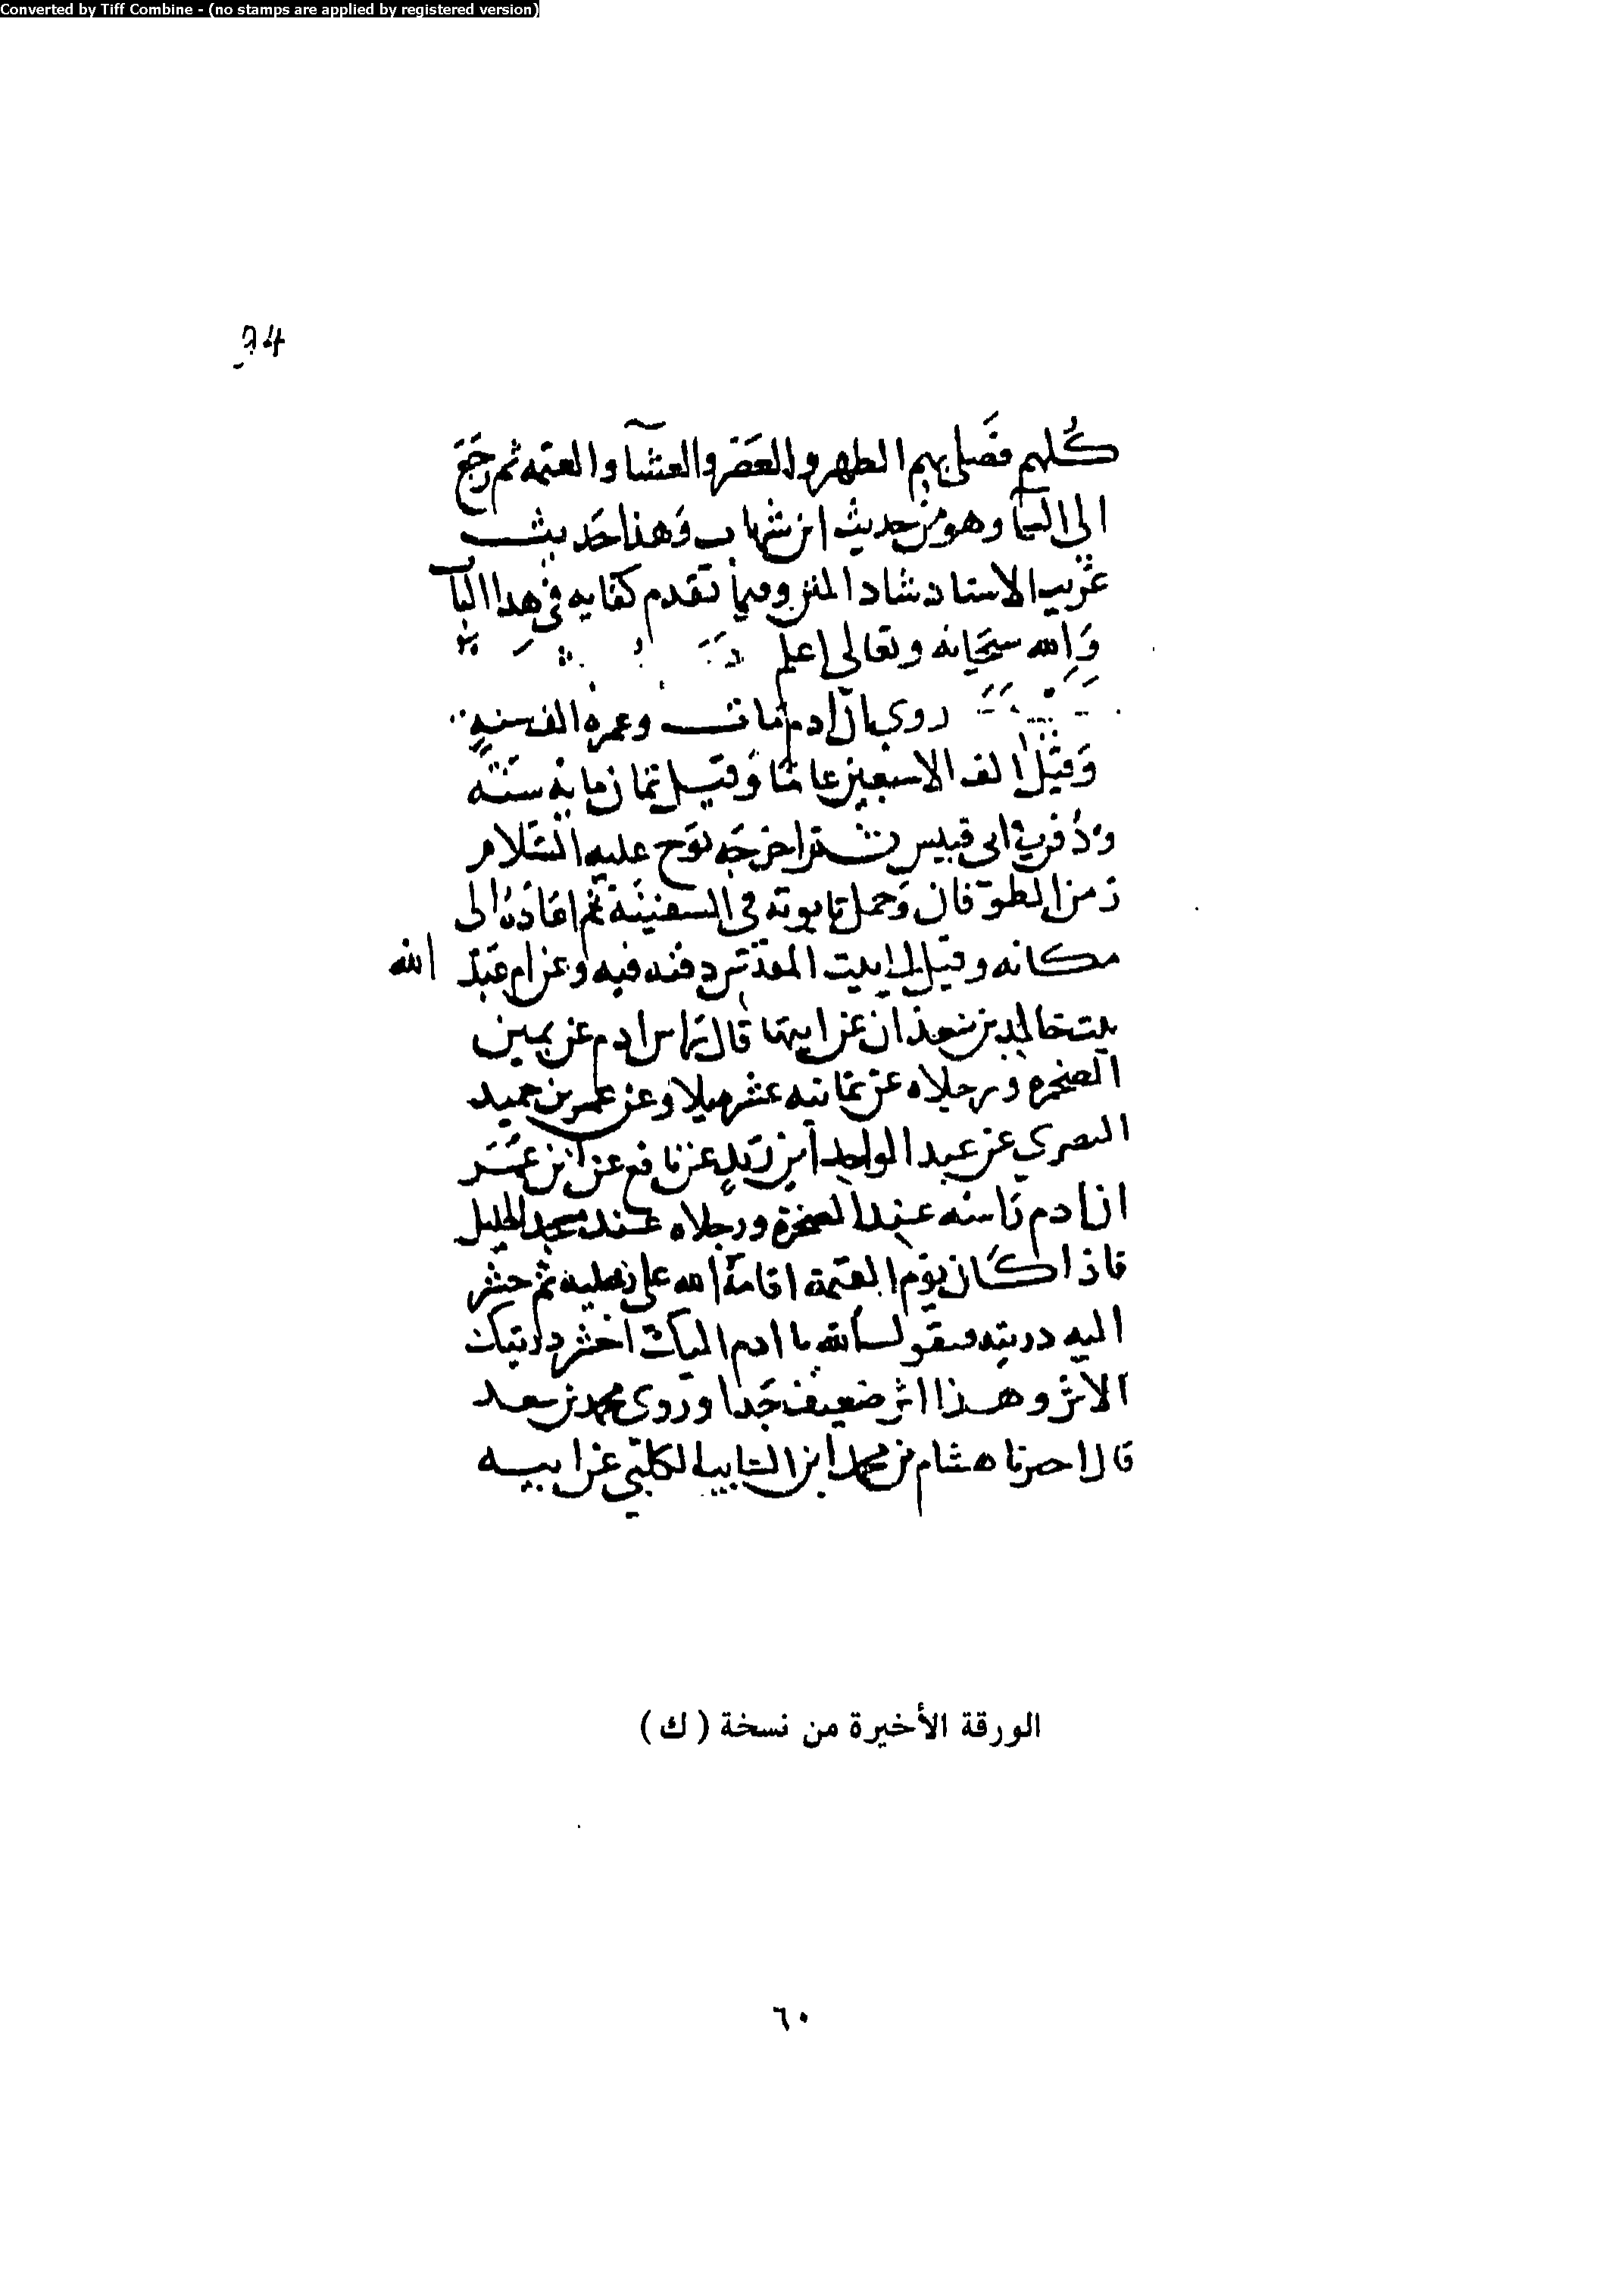 Converted by Tiff Combine - (no stamps are applied by registered version)
كلهم فصلى بهم الظهر والعصر والعشا والعتمه ثم رجع
الى اليا وهو من حديث ابن شهاب وهذا حديث
غريب الاسناد شاد المتن وفيما تقدم كفايه في هدا الباب
والله سبحانه وتعالى اعلم
روي ان ادم مات وعمره الف سنه
وقيل الف الا سبعين عاما وقيل ثمان مايه سنه
ودفن في ابي قبيس ثم اخرجه نوح عليه السلام
زمن الطوفان وحمل تابوته في السفينه ثم اعاده الى
مكانه وقيل الى بيت المقدس دفنه فيه وعن ام عبد الله
بنت خالد بن معدان عن ابيها قال راس ادم عن يمين
الصخره ورجلاه عن ثمانيه عشر ميلا وعن عمر بن حميد
البصري عن عبد الواحد ابن زيد عن نافع عن ابن عمر
ان ادم راسه عند الصخرة ورجلاه عند مسجد الخليل
فاذا كان يوم القيمة اقامه الله على رجليه ثم حشر
اليه دريته فيقول الله يا ادم اليك احشر دريتك
الاثر وهذا اثر ضعيف جدا وروى محمد بن سعد
قال احبرنا هشام بن محمد ابن السايب الكلبي عن ابيه
الورقة الأخيرة من نسخة ( ك )
٦٠